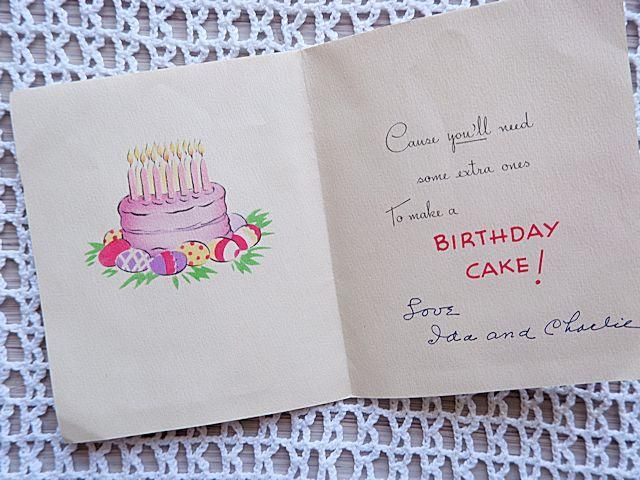 Cause you'll need
some extra ones
To make a
BIRTHDAY
CAKE!
Love
Ida and Charlie